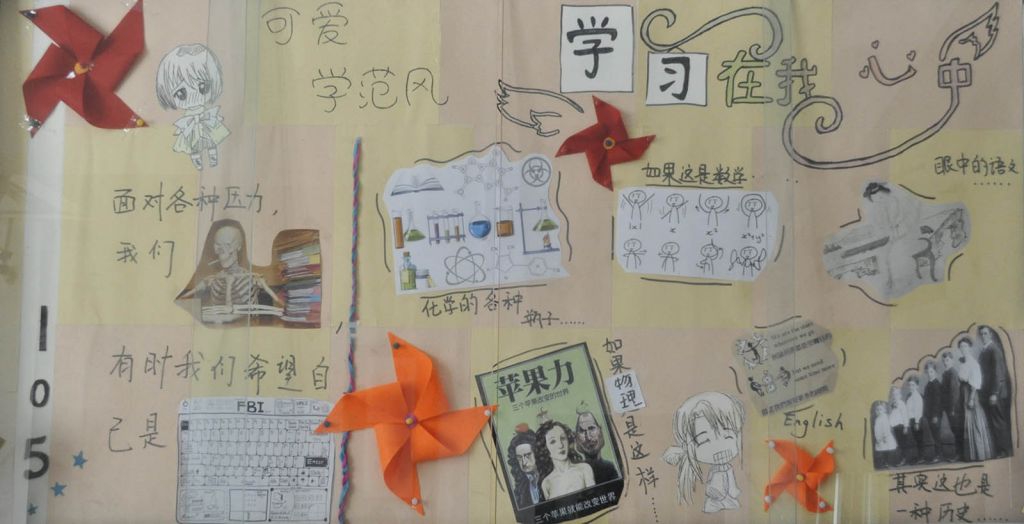 可爱
学范风
面对各种压力,
我们
,
有时我们希望自
己是
FBI
105
学习在我心中
化学的各种
瓶子......
如果这是数学......
|x|
x
x²
x²+y²
眼中的语文
......
苹果力
三个苹果改变的世界
三个苹果就能改变世界
如果物理是这样......
English
其实这也是
一种历史......